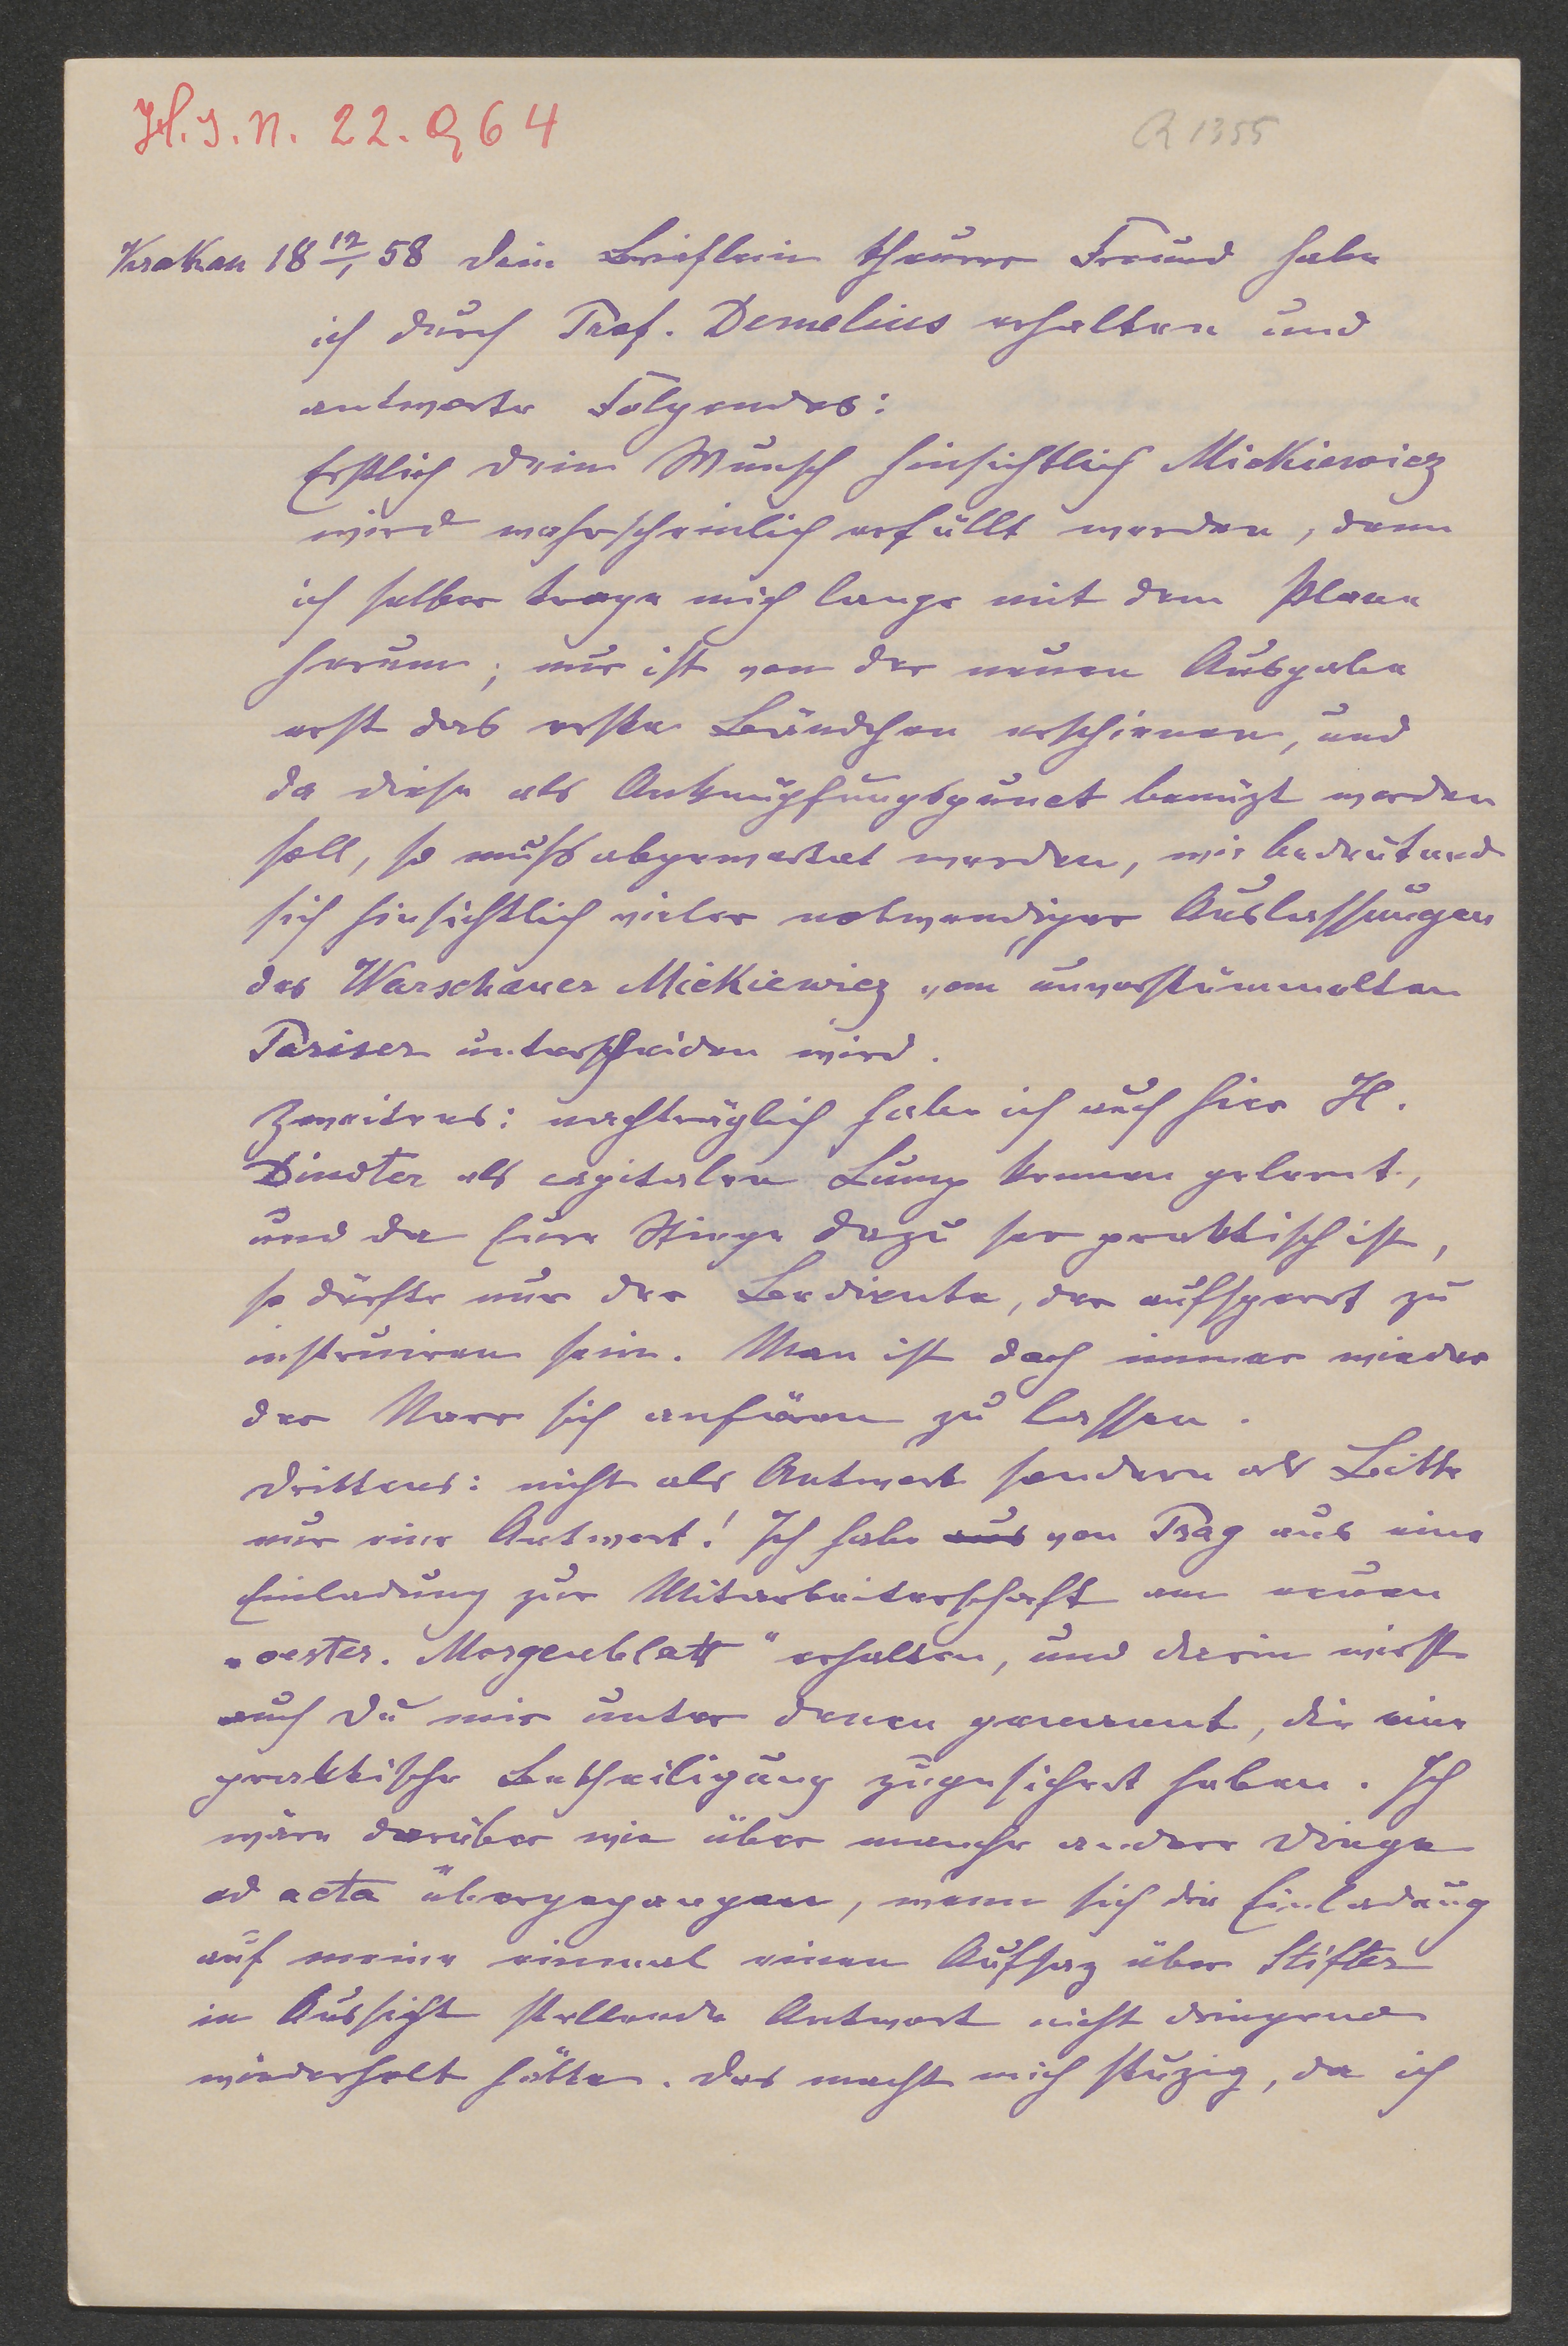 H.I.N. 22.964
R 1355
Krakau 18 12/1 58 Dein Brieflein theurer Freund habe
ich durch Prof. Demelius erhalten und
antworte Folgendes:
Erstlich Dein Wunsch hinsichtlich Mickiewicz
wird wahrscheinlich erfüllt werden, denn
ich selber trage mich lange mit dem Plane
herum; nur ist von der neuen Ausgabe
erst das erste Bändchen erschienen, und
da diese als Anknüpfungspunct benüzt werden
soll, so muß abgewartet werden, wie bedeutend
sich hinsichtlich vieler notwendiger Auslassungen
der Warschauer Mickiewicz vom unverstümmelten
Pariser unterscheiden wird.
Zweitens: nachträglich habe ich auch hier H.
Dindter als capitalen Lump kennen gelernt,
und da Eure Stiege dazu ser praktisch ist,
so dürfte nur der Bediente, der aufsperrt zu
instruiren sein. Man ist doch immer wieder
der Narr sich anfüren zu lassen.
Drittens: nicht als Antwort sondern als Bitte
nur eine Antwort! Ich habe aus von Prag aus eine
Einladung zur Mitarbeiterschaft am neuen
„oester. Morgenblatt" erhalten, und darin wirst
auch Du mir unter denen genannt, die eine
praktische Betheiligung zugesichert haben. Ich
wäre darüber wie über manche andere Dinge
ad acta übergegangen, wenn sich die Einladung
auf meine einmal einen Aufsaz über Stifter
in Aussicht stellende Antwort nicht dringend
wiederholt hätte. Das macht mich stuzig, da ich